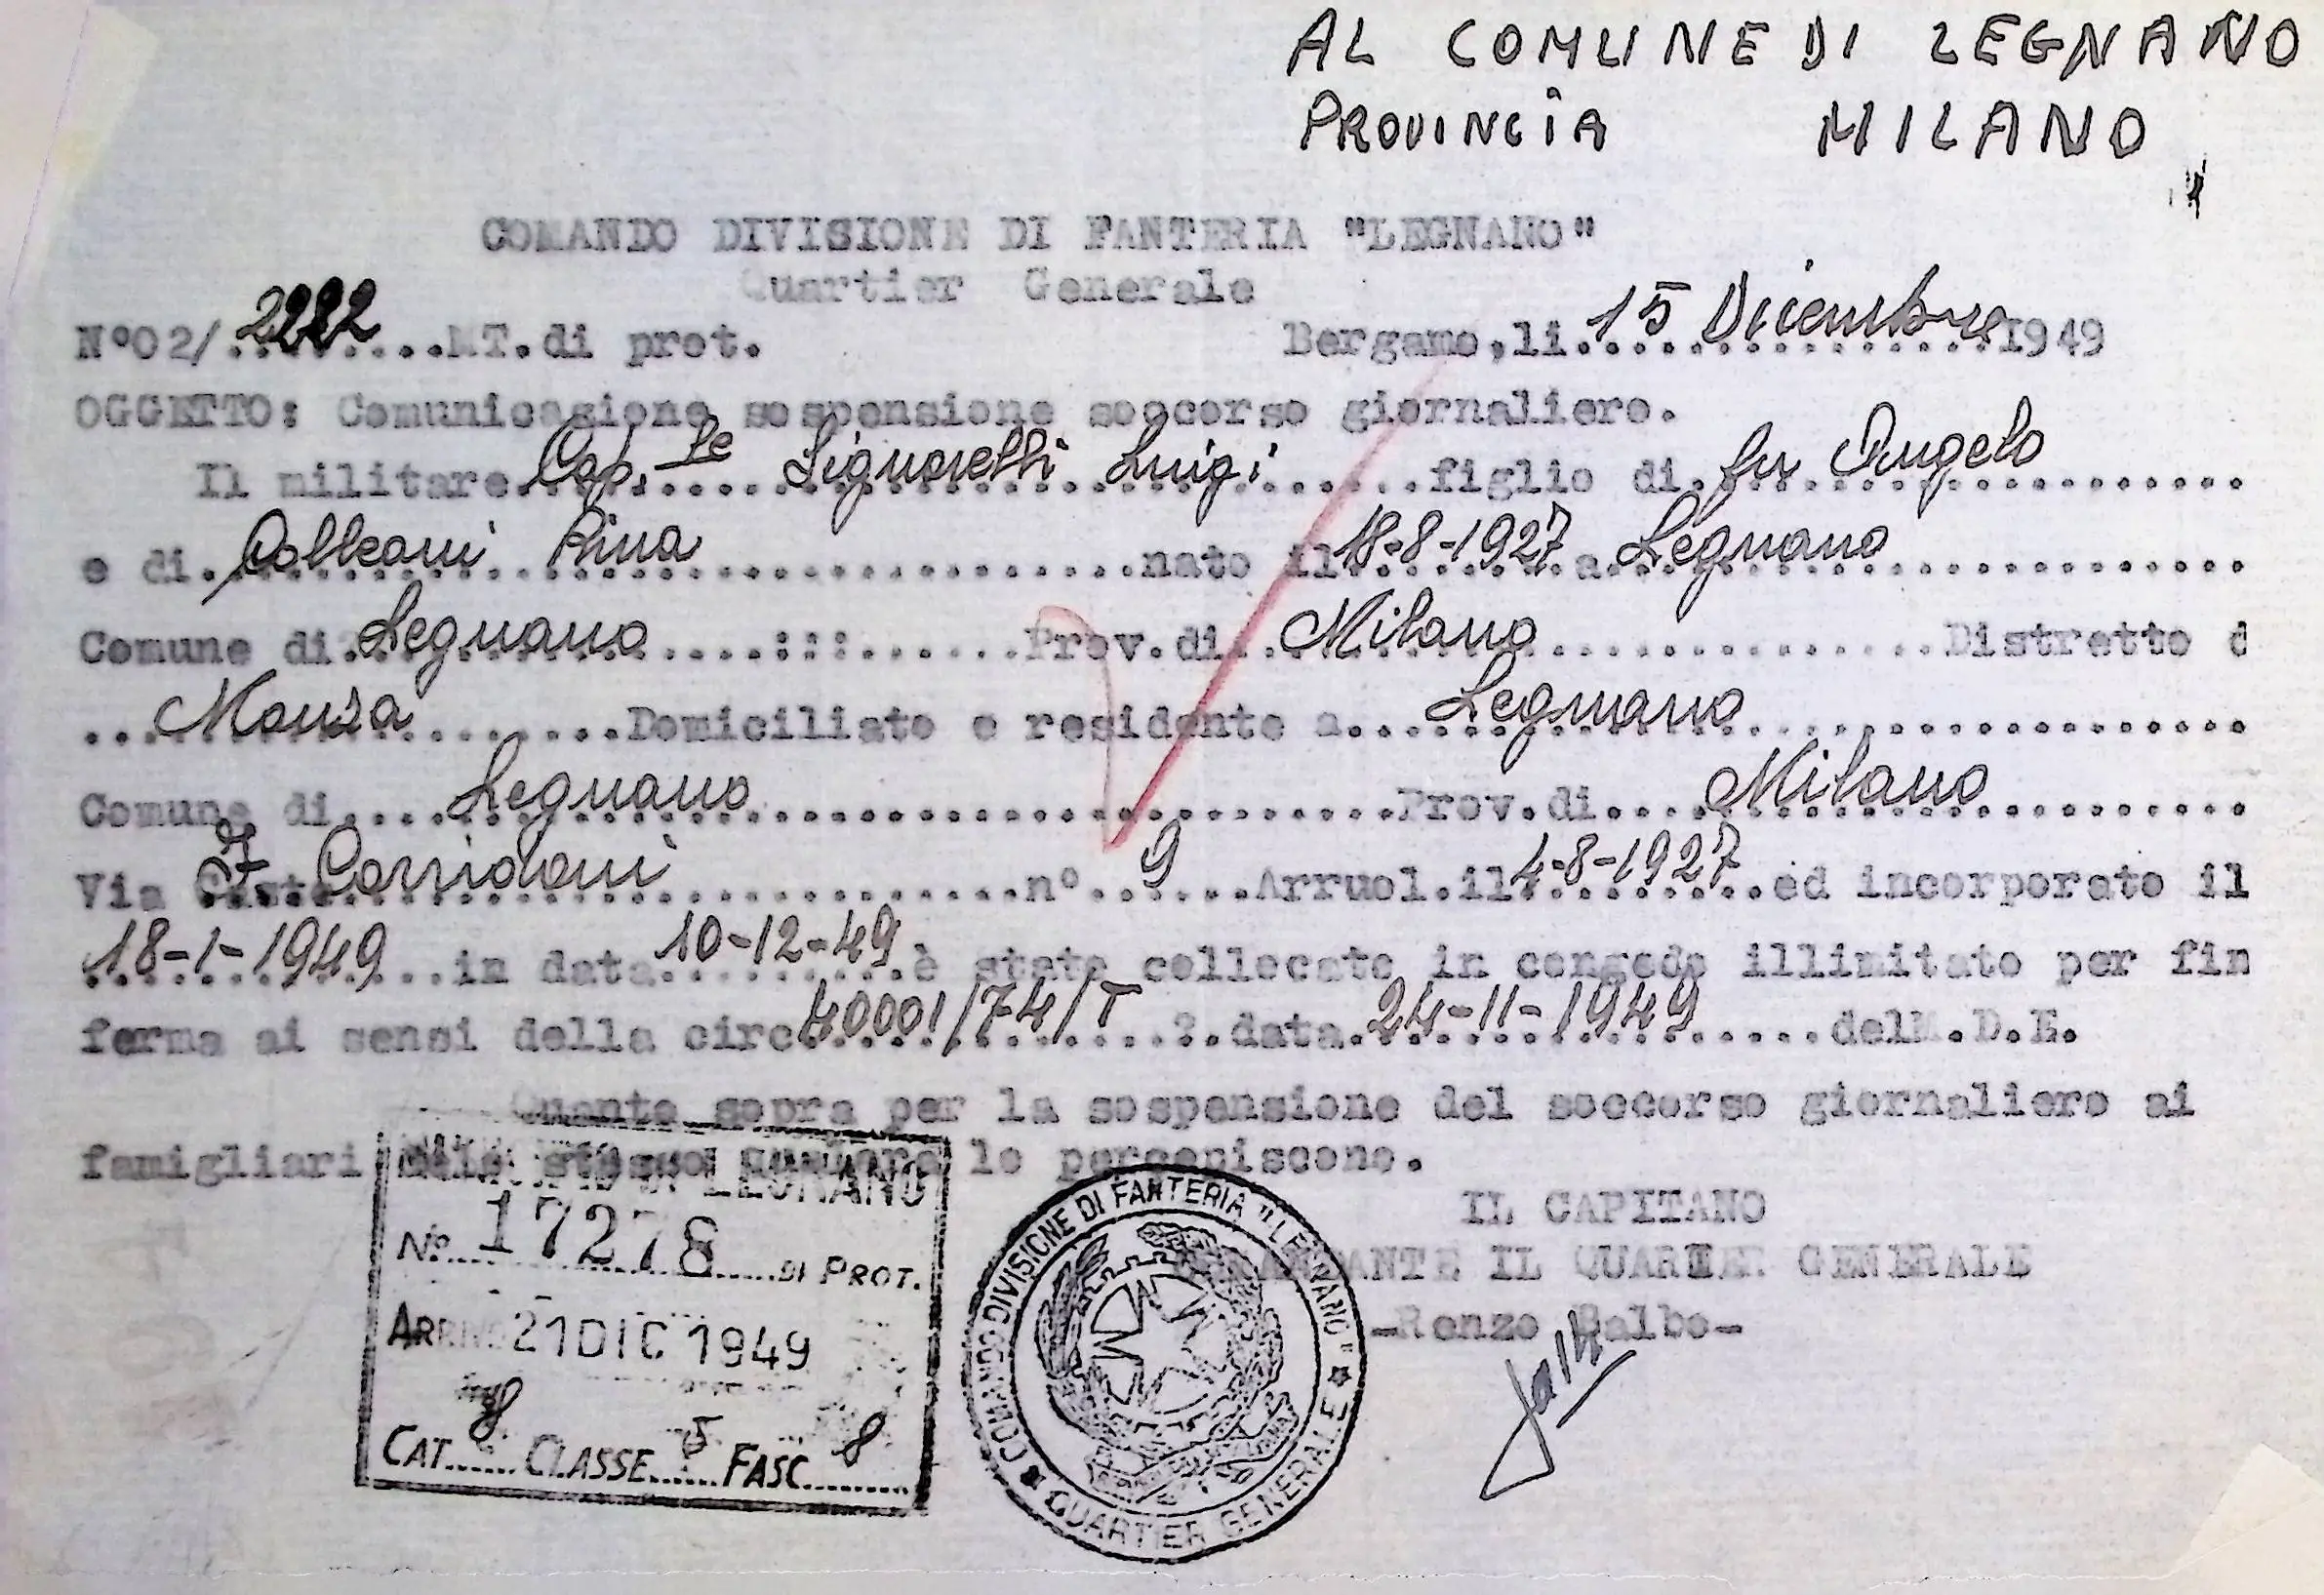 AL COMUNE DI LEGNANO
PROVINCIA MILANO
COMANDO DIVISIONE DI FANTERIA "LEGNANO"
Quartier Generale
N°02/.2282...MT.di prot. Bergamo,li.15 Dicembre 1949
OGGETTO: Comunicazione sospensione soccorso giornaliero.
Il militare Cap.le Signorelli Luigi figlio di fu Angelo
e di Colleoni Rina nato il 18-8-1927 a Legnano
Comune di Legnano ....:::...... Prov.di. Milano Distretto d
... Monza Domiciliato e residente a Legnano
Comune di Legnano Prov.di Milano
Via F Corridoni n° 9 Arruol.il 4-8-1927 ed incorporato il
18-1-1949 in data 10-12-49 è stato collocato in congedo illimitato per fin
ferma ai sensi della circ 40001/74/T ?.data 24-11-1949 delM.D.E.
Quanto sopra per la sospensione del soccorso giornaliero ai
famigliari dello stesso qualora lo percepiscono.
IL CAPITANO
IL QUARTIER GENERALE
-Renzo Balbo-
LEGNANO
No. 17278 DI PROT.
ARRIVO 21 DIC 1949
CAT. 8 CLASSE 5 FASC. 8
COMANDO DIVISIONE DI FANTERIA "LEGNANO"
QUARTIER GENERALE